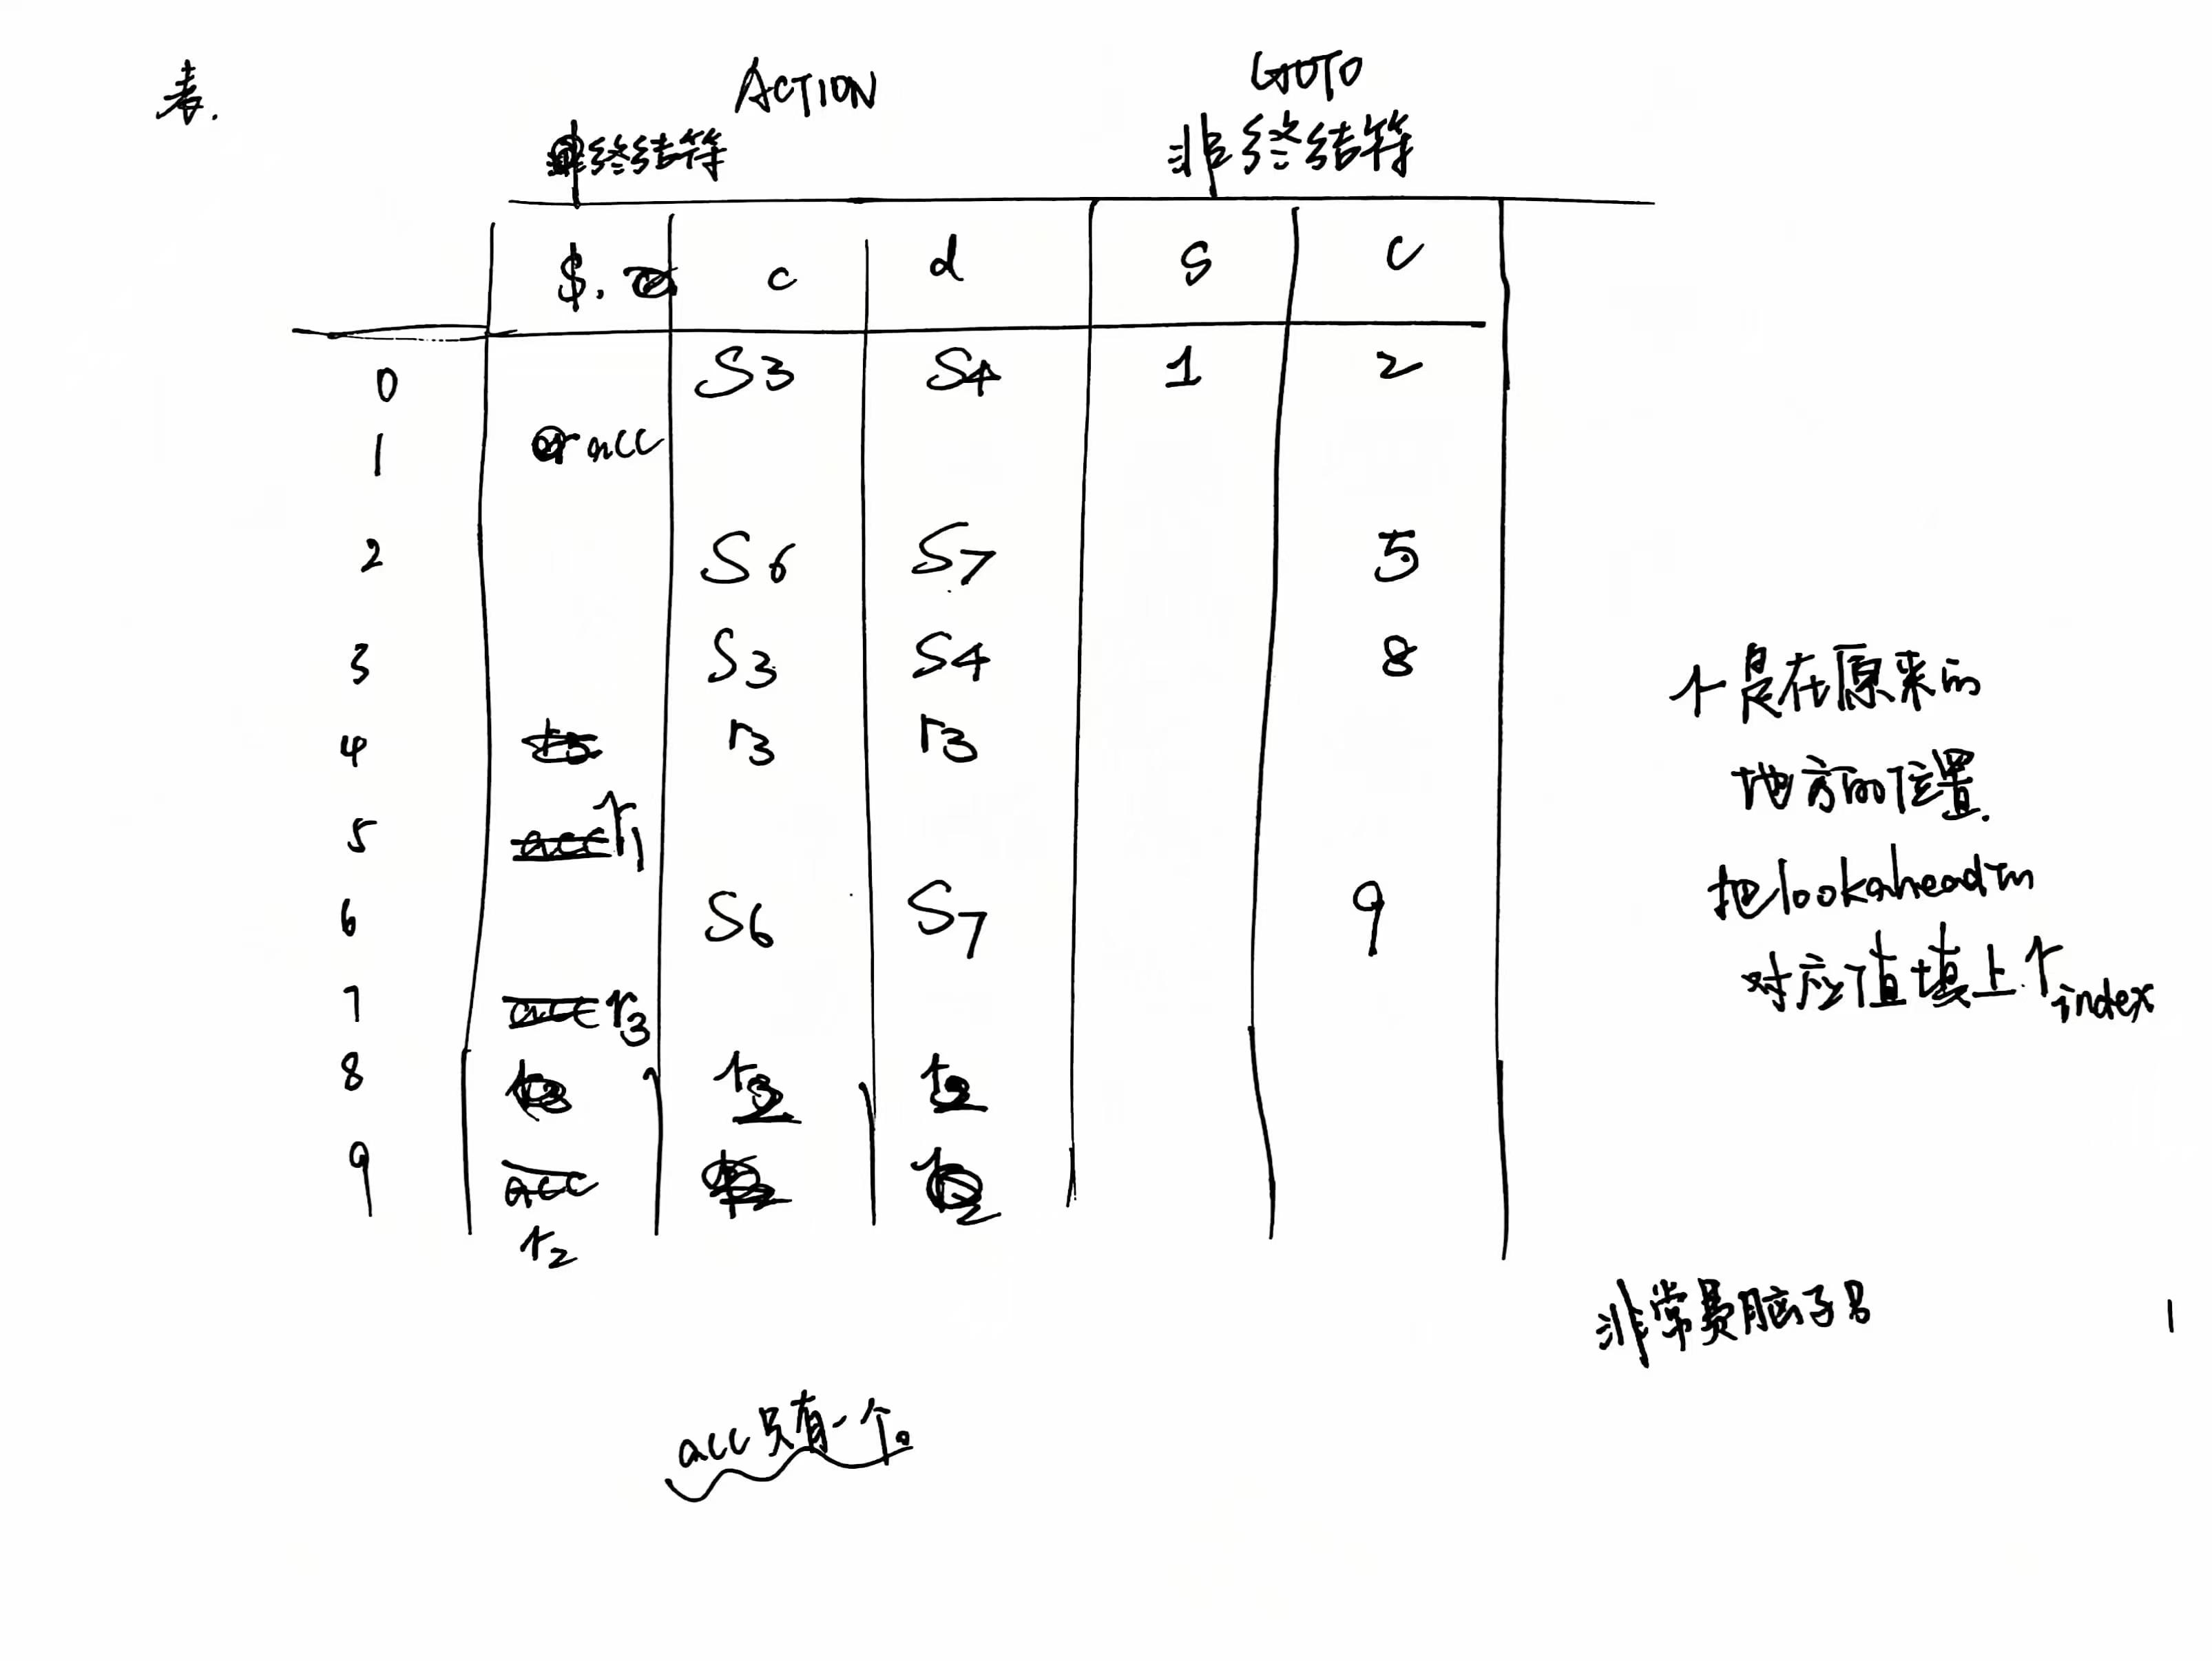 表.
ACTION GOTO
终结符 非终结符
$. c d S C
0 S3 S4 1 2
1 acc
2 S6 S7 5
3 S3 S4 8
4 r3 r3
5 r1
6 S6 S7 9
7 r3
8 r2 r2
9
r2
r是在原来的
地方的位置.
把lookahead的
对应值填上r index
非常费脑子
acc只有一个。